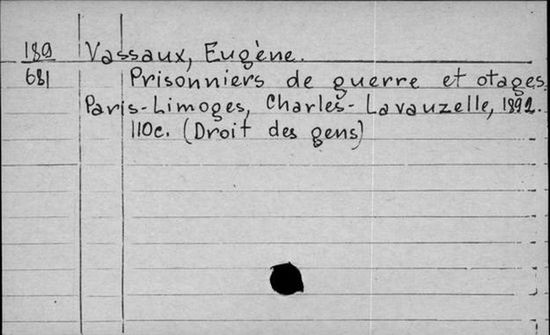 189 Vassaux, Eugène.
681 Prisonniers de guerre et otages.
Paris-Limoges, Charles-Lavauzelle, 1892.
110c. (Droit des gens)